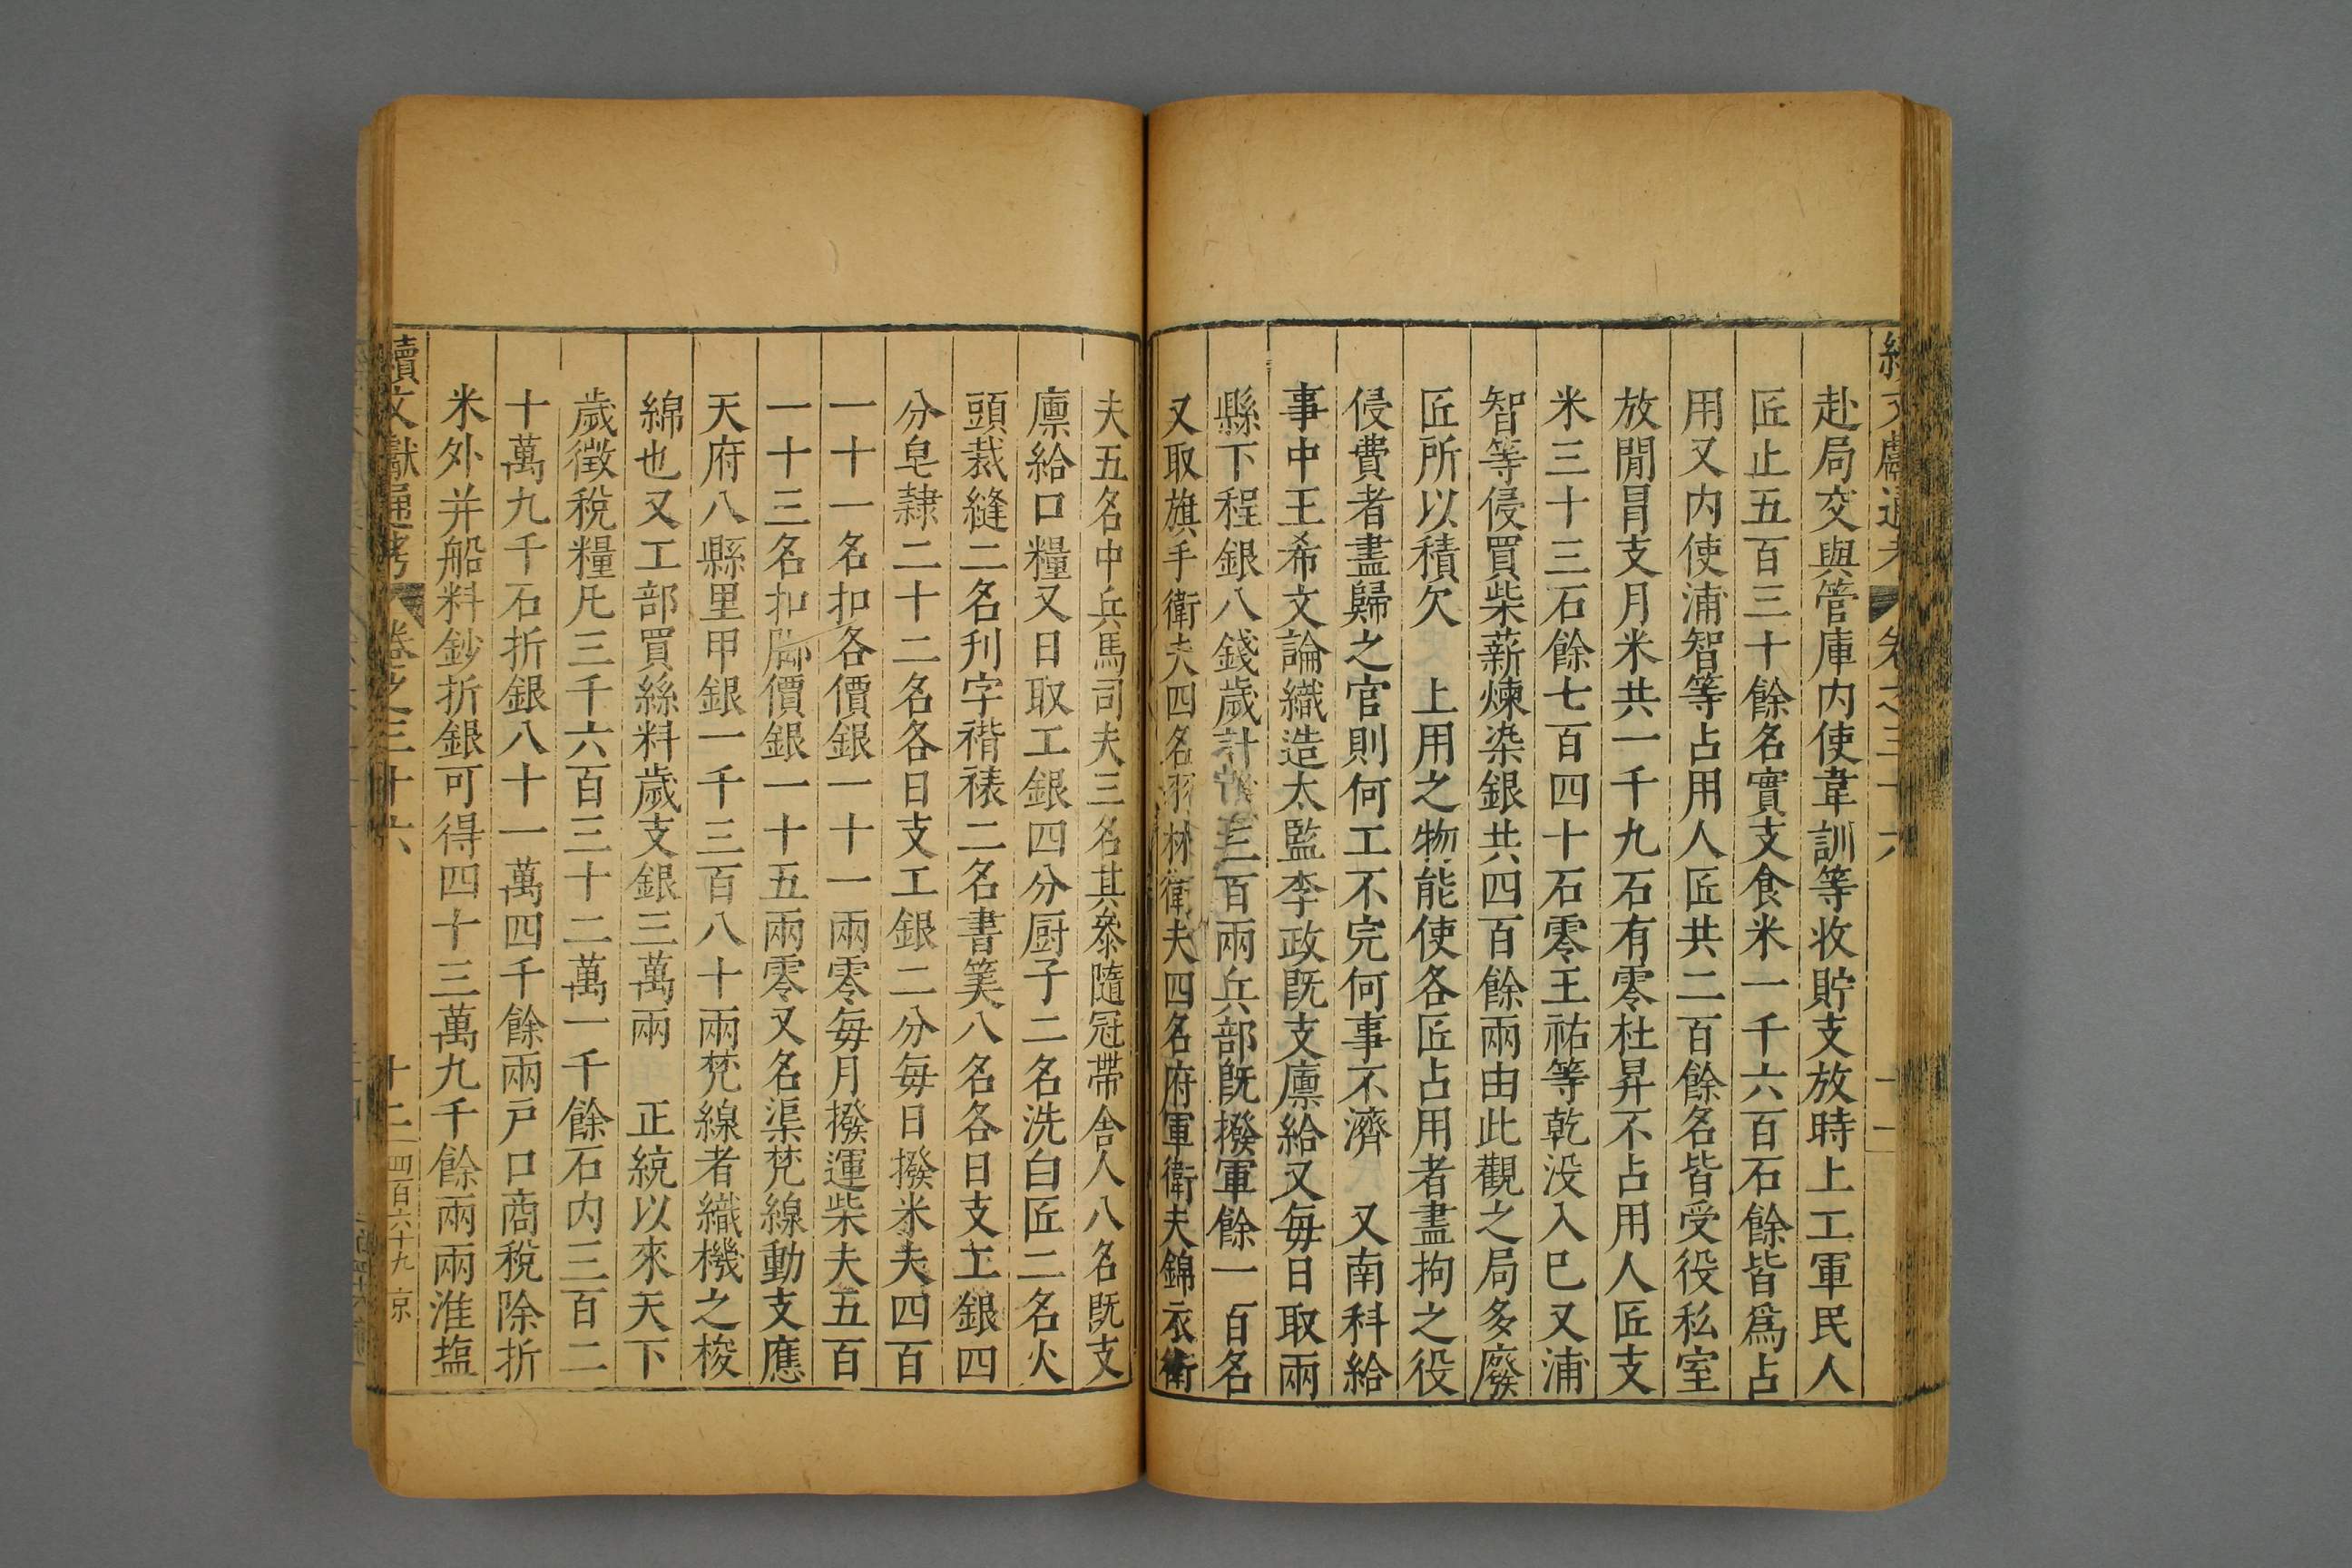 續文獻通考 卷之三十六 十一
赴局交與管庫内使韋訓等收貯支放時上工軍民人
匠止五百三十餘名實支食米一千六百石餘皆爲占
用又内使浦智等占用人匠共二百餘名皆受役私室
放閒冐支月米共一千九石有零杜昇不占用人匠支
米三十三石餘七百四十石零王祐等乾没入巳又浦
智等侵買柴薪煉染銀共四百餘兩由此觀之局多廢
匠所以積欠 上用之物能使各匠占用者盡拘之役
侵費者盡歸之官則何工不完何事不濟 又南科給
事中王希文論織造太監李政既支廪給又每日取兩
縣下程銀八錢歲計三百兩兵部既撥軍餘一百名
又取旗手衛夫四名羽林衛夫四名府軍衛夫錦衣衛
夫五名中兵馬司夫三名其叅隨冠帶舎人八名既支
廪給口糧又日取工銀四分厨子二名洗白匠二名火
頭裁縫二名刋字褙裱二名書筭八名各日支工銀四
分皂隷二十二名各日支工銀二分每日撥米夫四百
一十一名扣各價銀一十一兩零每月撥運柴夫五百
一十三名扣脚價銀一十五兩零又名渠梵線動支應
天府八縣里甲銀一千三百八十兩梵線者織機之梭
綿也又工部買絲料歲支銀三萬兩 正統以來天下
歲徴稅糧凡三千六百三十二萬一千餘石内三百二
十萬九千石折銀八十一萬四千餘兩戸口商稅除折
米外并船料鈔折銀可得四十三萬九千餘兩兩淮塩
續文獻通考 卷之三十六 十二 四百六十九 京